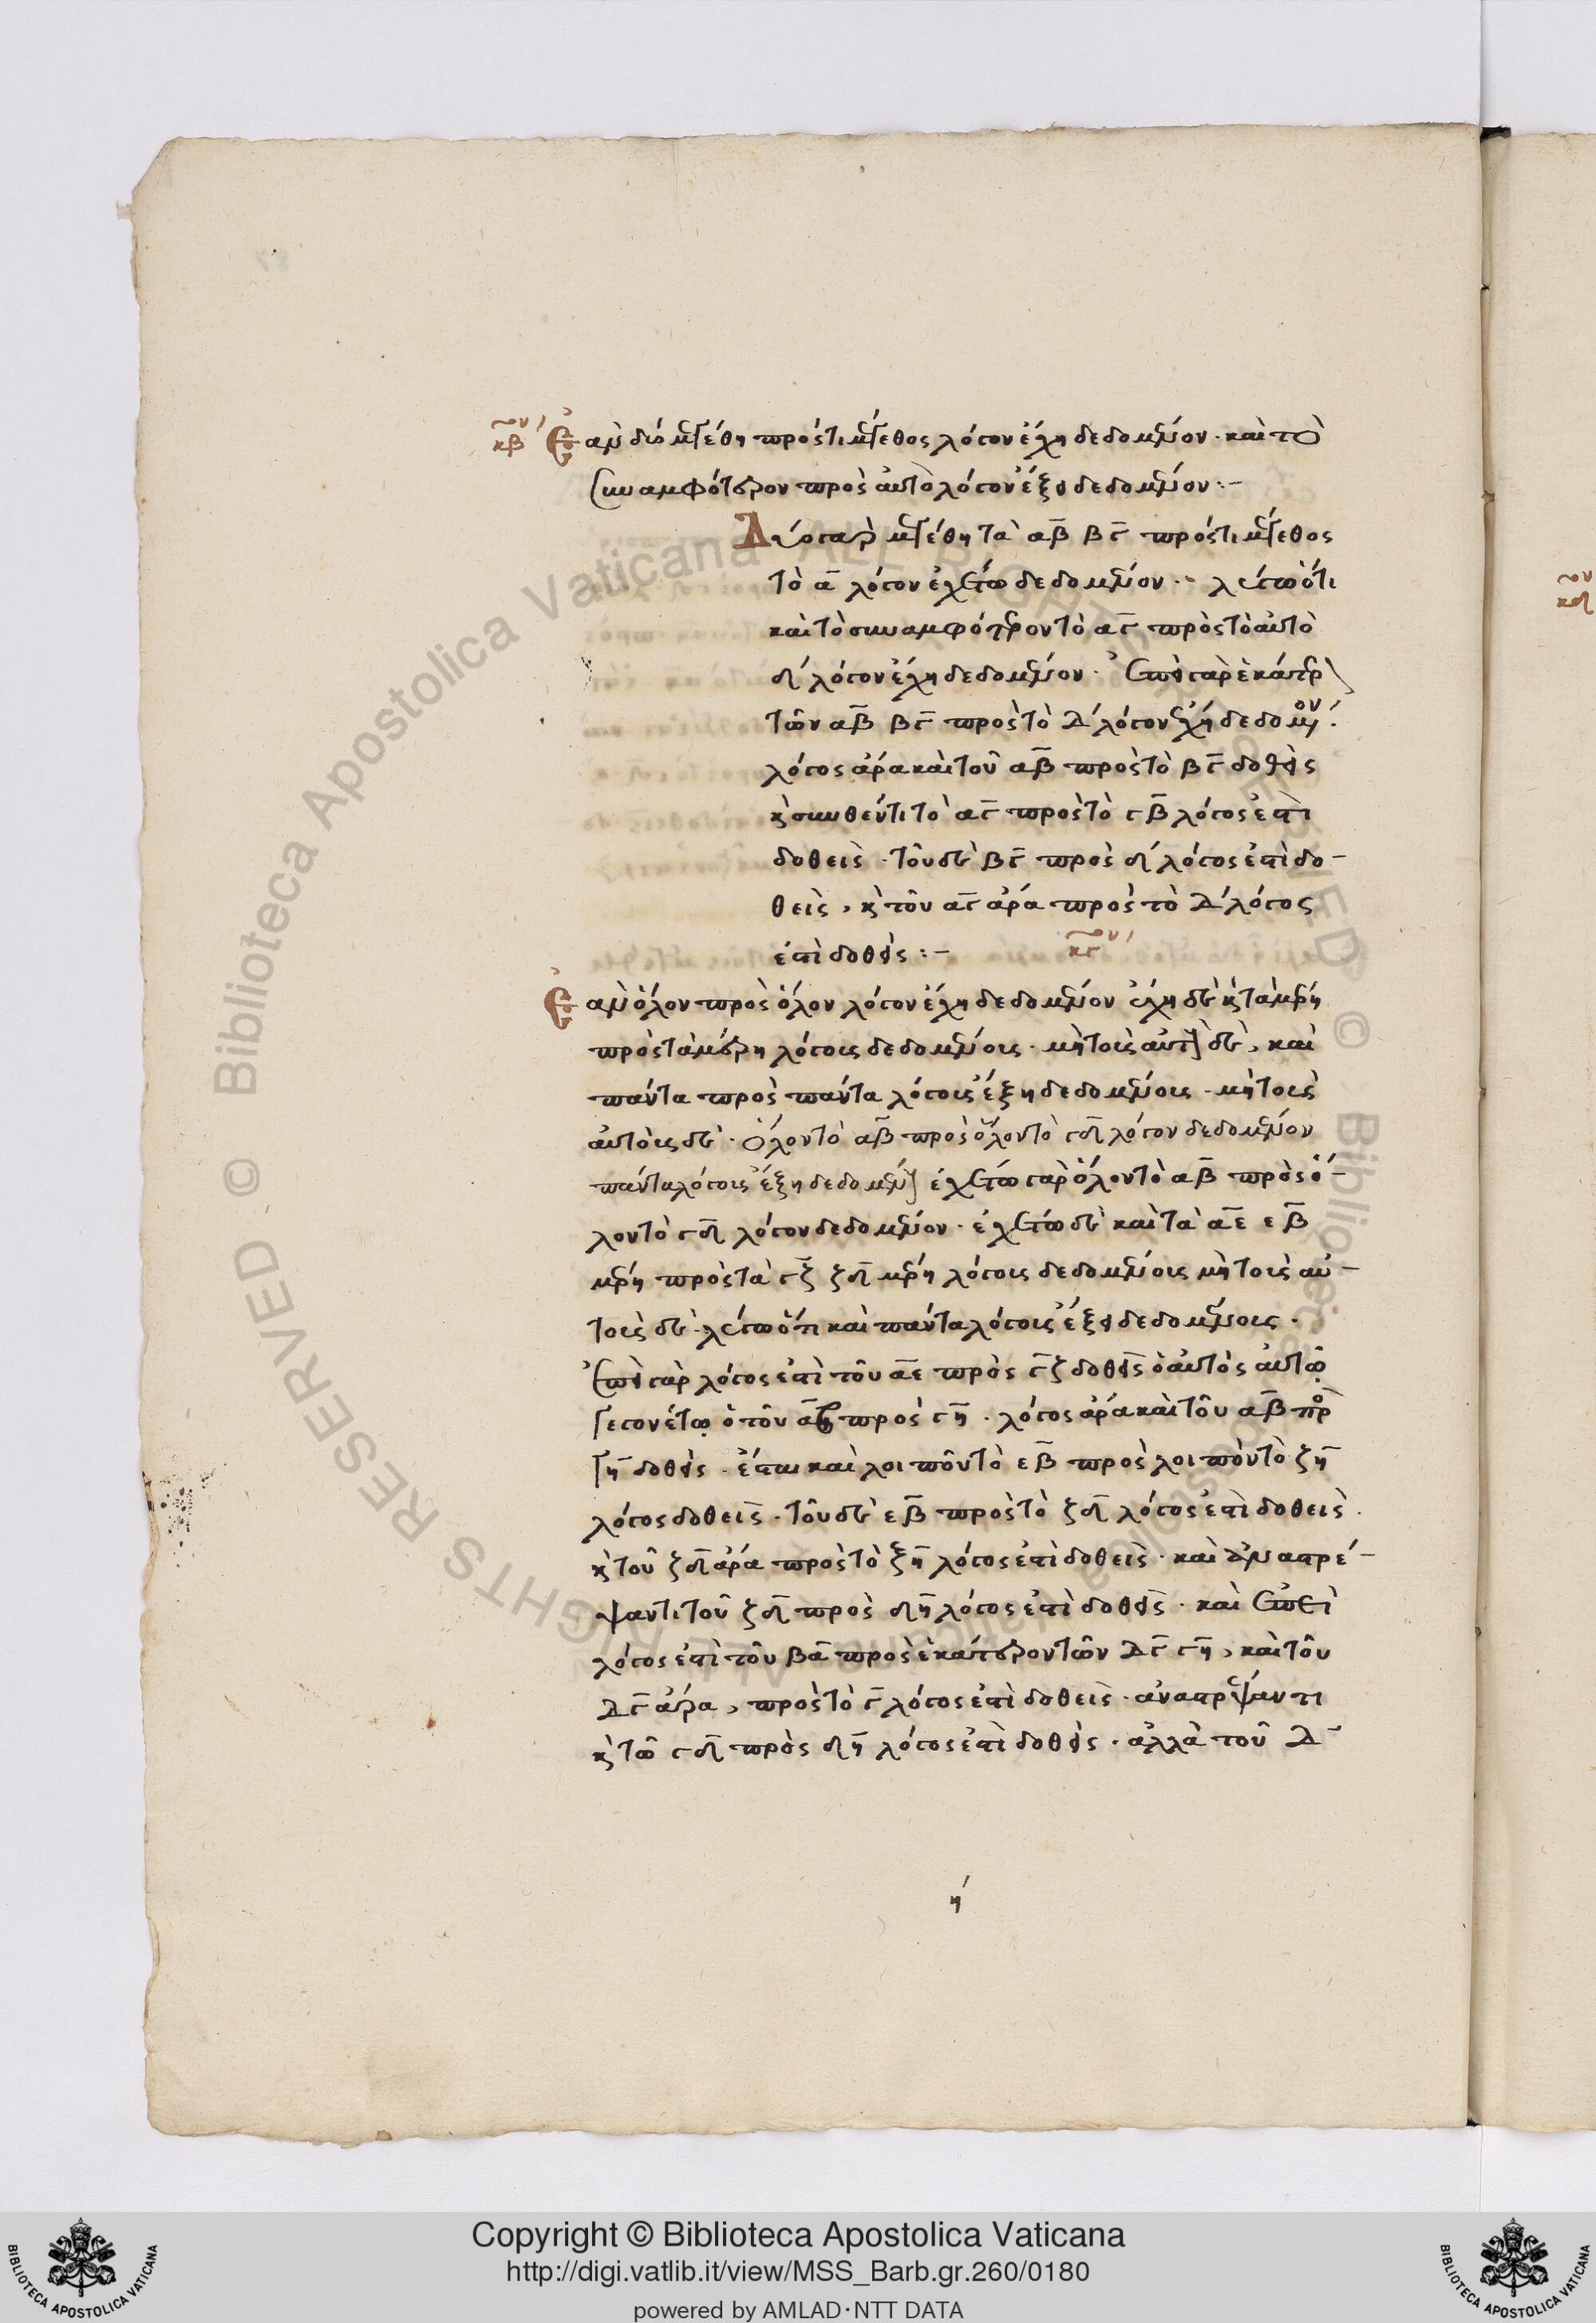 κβον
Ἐὰν δύο μεγέθη πρός τι μέγεθος λόγον ἔχη δεδομένον · καὶ τὸ
συναμφότερον πρὸς αὐτὸ λόγον ἕξει δεδομένον :-
Δύο γαρ μεγέθη τὰ αβ βγ πρός τι μέγεθος
τὸ δ λόγον ἐχέτω δεδομένον · λέγω ὅτι
καὶ τὸ συναμφότερον τὸ αγ πρὸς τὸ αὐτὸ
δ λόγον ἔχη δεδομένον · Ἐπεὶ γὰρ ἑκάτερον
τῶν αβ βγ πρὸς τὸ δ λόγον ἔχη δεδομένον ·
λόγος ἄρα καὶ τοῦ αβ πρὸς τὸ βγ δοθεὶς
κ συνθέντι τὸ αγ πρὸς τὸ γβ λόγος ἐστὶ
δοθεὶς · τοῦ δὲ βγ πρὸς δ λόγος ἐστὶ δο-
θεὶς, κ τοῦ αγ ἄρα πρὸς τὸ δ λόγος
ἐστὶ δοθείς :-
κγον
Ἐὰν ὅλον πρὸς ὅλον λόγον ἔχη δεδομένον ἔχη δὲ κ τὰ μέρη
πρὸς τὰ μέρη λόγους δεδομένους · μὴ τοὺς αὐτοὺς δὲ, καὶ
πάντα πρὸς πάντα λόγους ἕξη δεδομένους · μὴ τοὺς
αὐτοὺς δὲ · ὅλον τὸ αβ πρὸς ὅλον τὸ γδ λόγον δεδομένον
πάντα λόγους ἕξη δεδομένους ἐχέτω γὰρ ὅλον τὸ αβ πρὸς ὅ-
λον τὸ γδ λόγον δεδομένον · ἐχέτω δὲ καὶ τὰ αε εβ
μέρη πρὸς τὰ γζ ζδ μέρη λόγους δεδομένους μὴ τοὺς αὐ-
τοὺς δὲ · λέγω ὅτι καὶ πάντα λόγους ἕξει δεδομένους ·
Ἐπεὶ γὰρ λόγος ἐστὶ τοῦ αε πρὸς γζ δοθεὶς ὁ αὐτὸς αὐτῶ
γεγονέτω ὁ τοῦ πρὸς γη · λόγος ἄρα καὶ τοῦ αβ πρὸς
γη δοθείς · ἔσται καὶ λοιποῦ τὸ εβ πρὸς λοιπὸν τὸ ζη
λόγος δοθεὶς · τοῦ δὲ εβ πρὸς τὸ ζδ λόγος ἐστὶ δοθεὶς ·
κ τοῦ ζδ ἄρα πρὸς τὸ ζη λόγος ἐστὶ δοθεὶς · καὶ ἀναστρέ-
ψαντι τοῦ ζδ πρὸς δη λόγος ἐστὶ δοθεὶς · καὶ ἐπεὶ
λόγος ἐστὶ τοῦ βα πρὸς ἑκάτερον τῶν δγ γη, καὶ τοῦ
δγ ἄρα, πρὸς τὸ γ λόγος ἐστὶ δοθεὶς · ἀναστρέψαντι
κ τῶ γδ πρὸς δη λόγος ἐστὶ δοθείς · ἀλλὰ τοῦ δ
η
ον
κδ
Copyright © Biblioteca Apostolica Vaticana
http://digi.vatlib.it/view/MSS_Barb.gr.260/0180
powered by AMLAD·NTT DATA